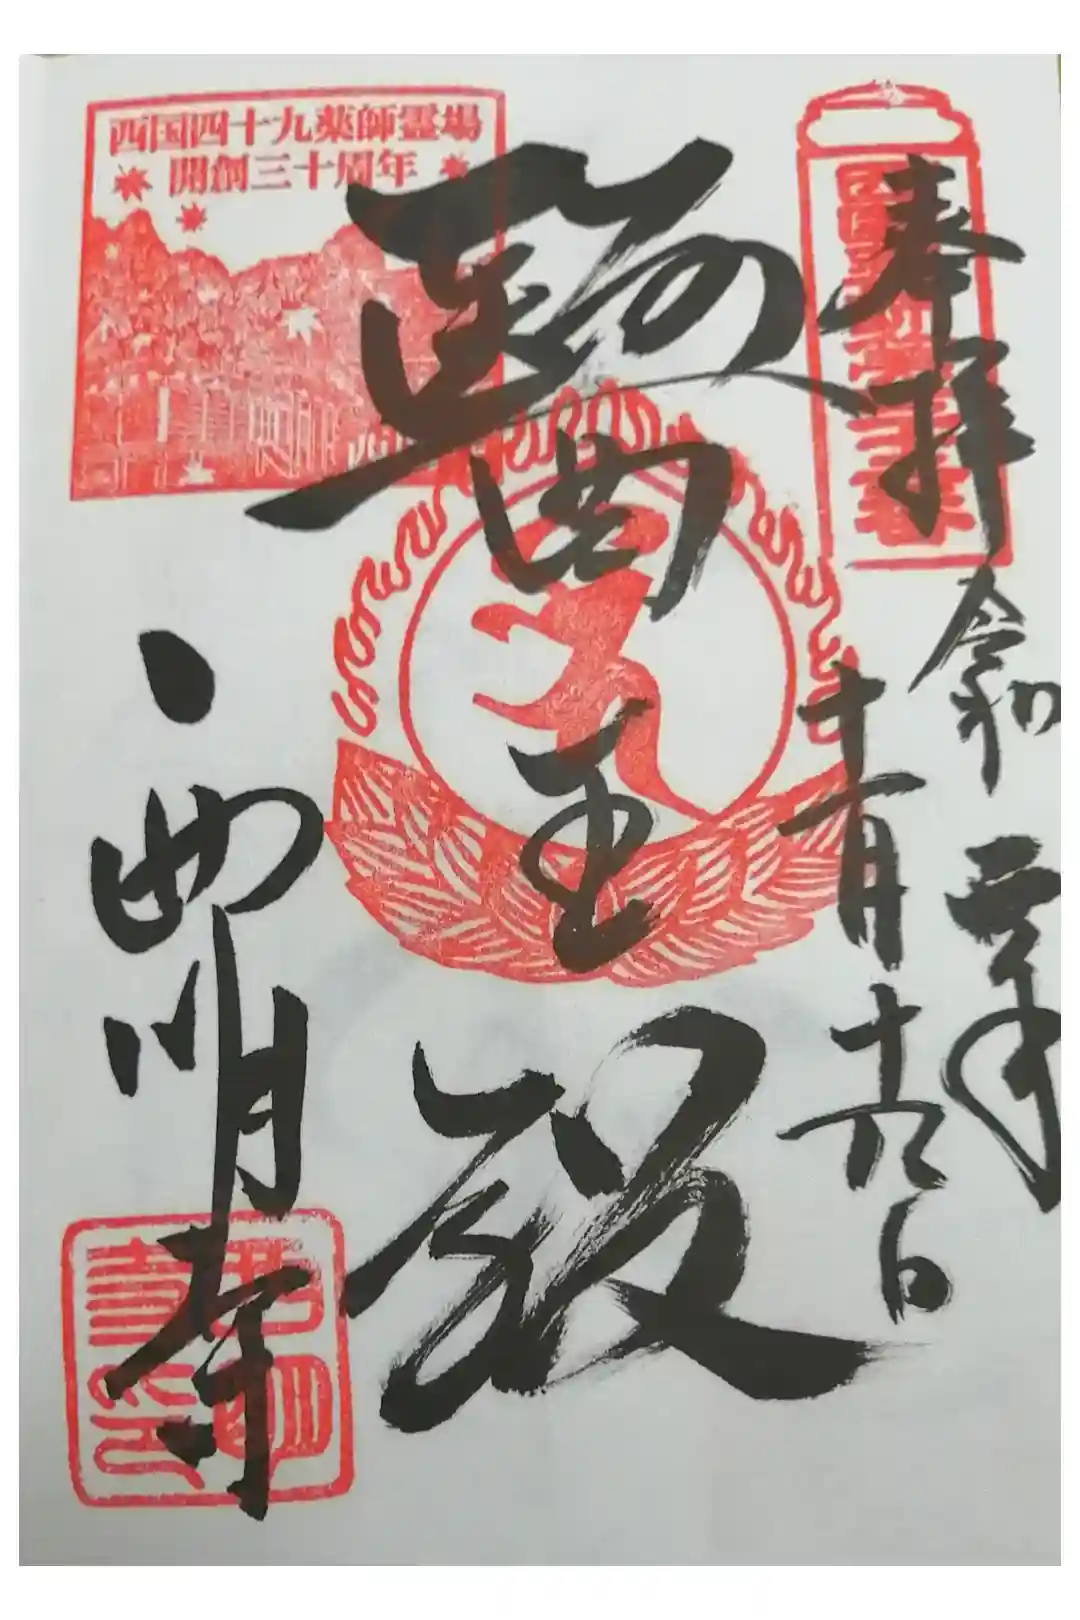 奉拝
令和元年
十一月十九日
醫王殿
西明寺
西国四十九薬師霊場
開創三十周年